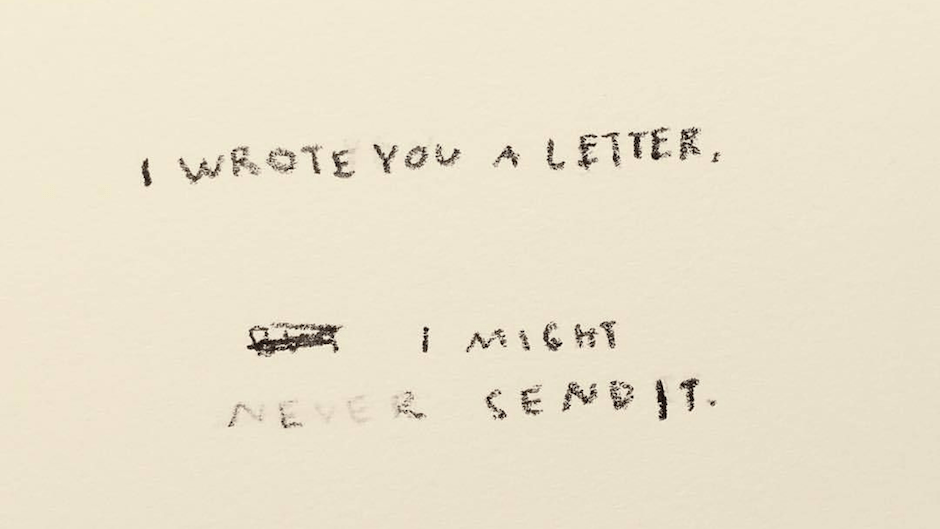 I WROTE YOU A LETTER,
I MIGHT
NEVER SEND IT.